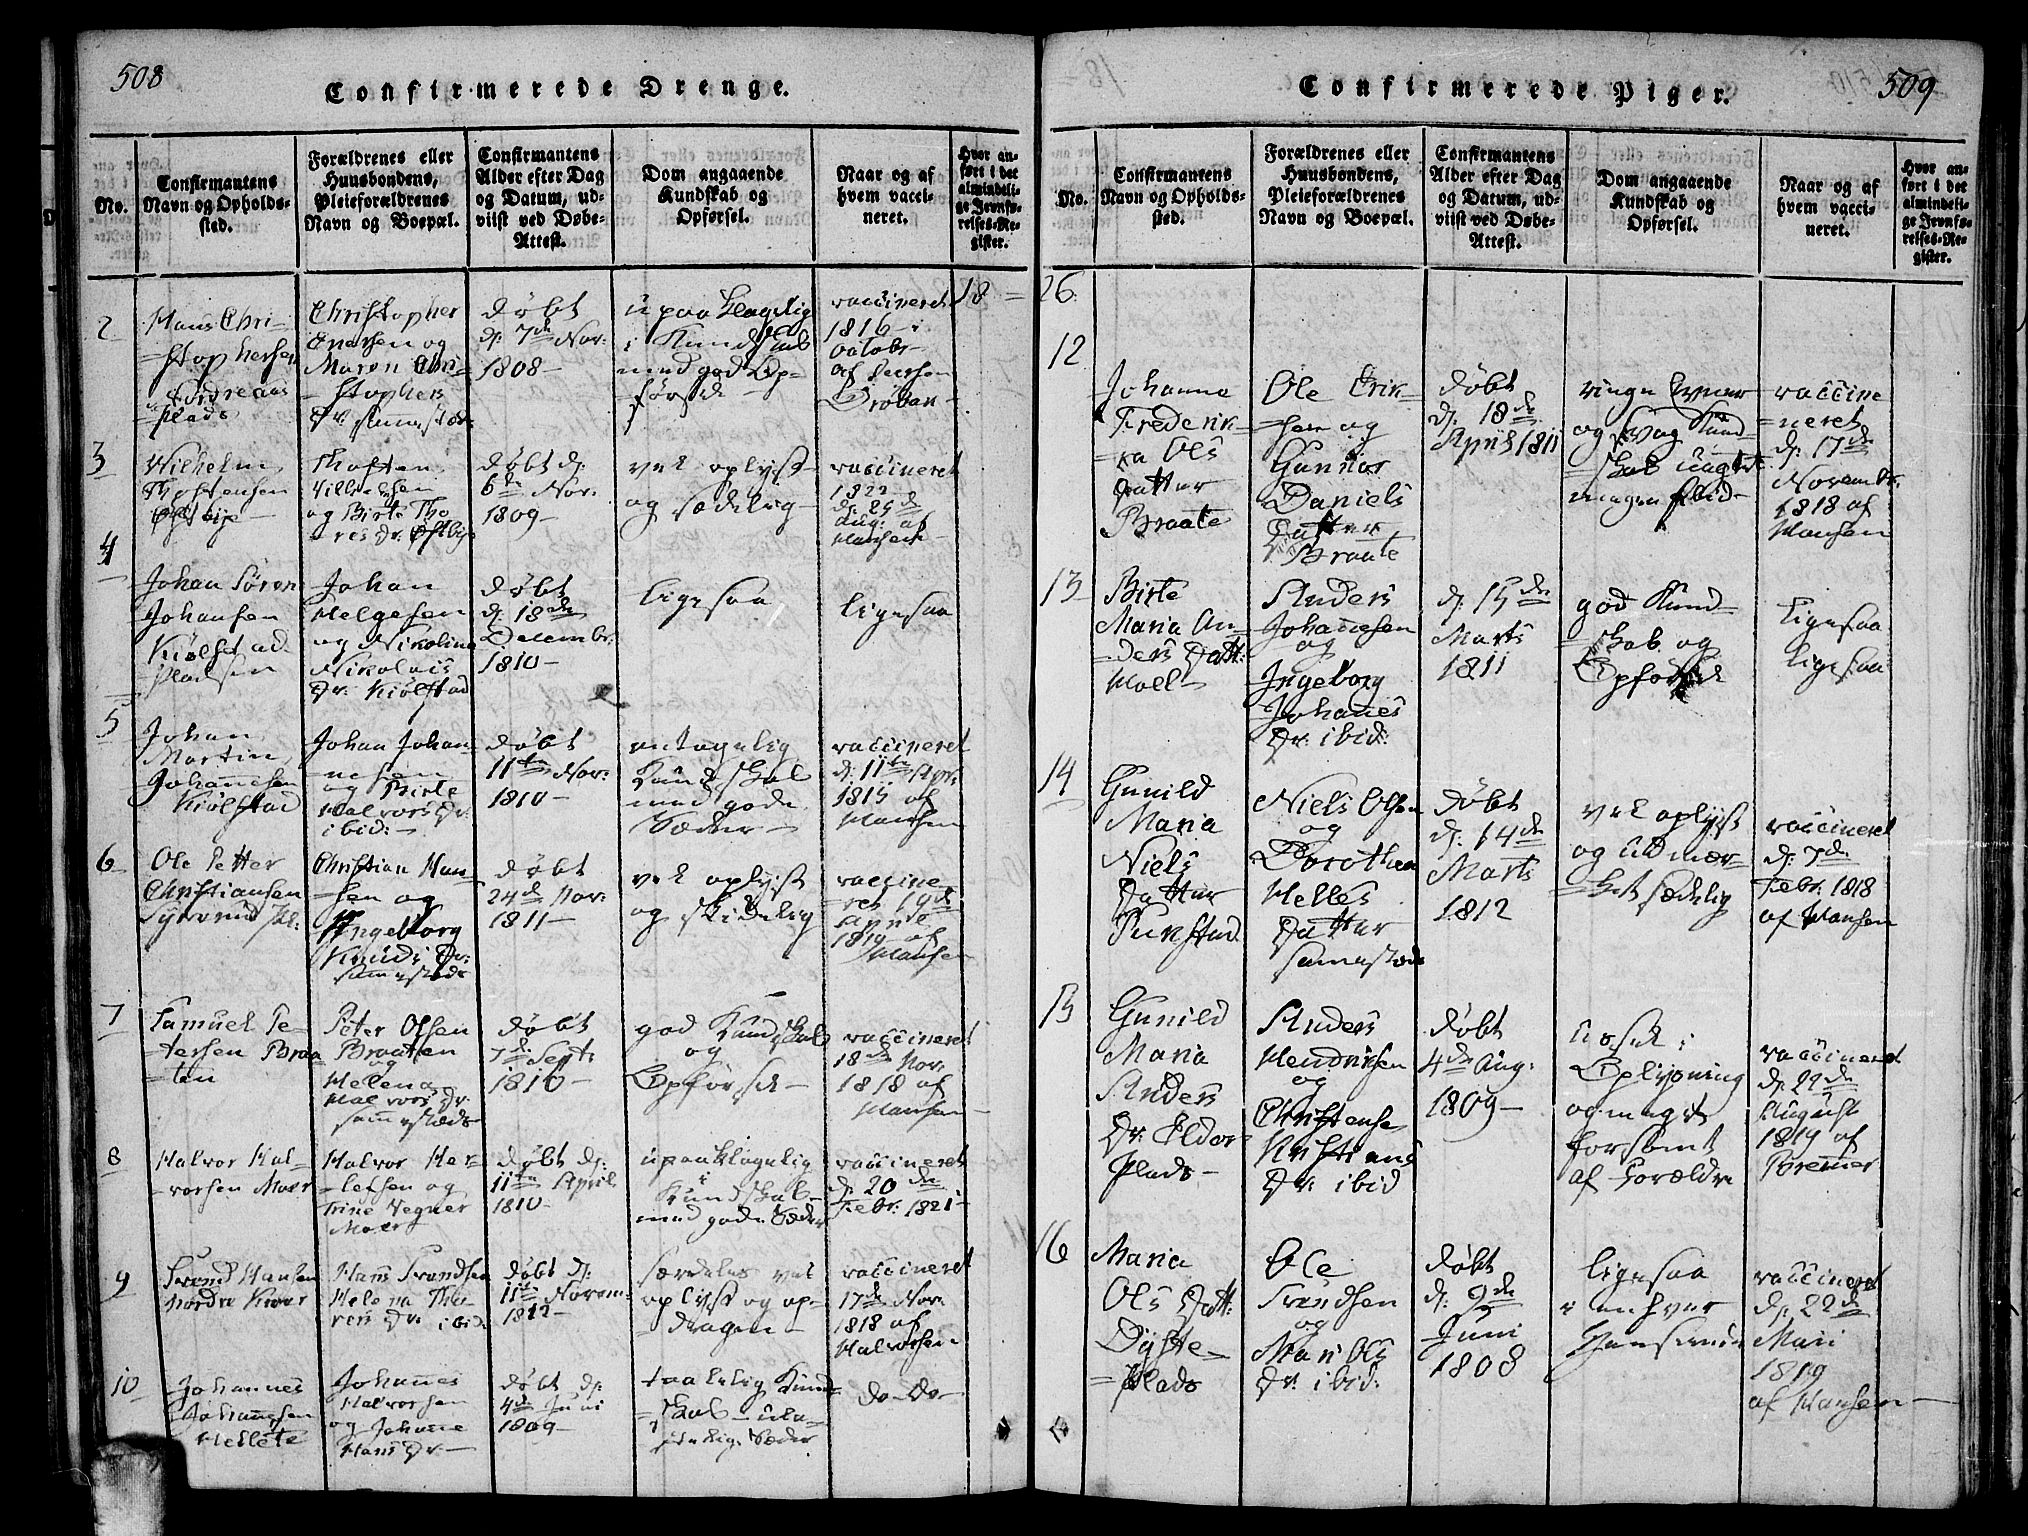 508
Confirmerede Drenge.
No.
Confirmantens
Navn og Opholds-
sted.
Forældrenes eller
Huusbondens,
Pleieforældrenes
Navn og Boepæl.
Confirmantens
Alder efter Dag
og Datum, ud-
viist ved Døbe-
Attest.
Dom angaaende
Kundskab og
Opførsel.
Naar og af
hvem vacci-
neret.
Hvor an-
ført i det
almindeli-
ge Jevnfø-
relses-Re-
gister.
18 =
2
Hans Chri-
=stophersen
plads
Christopher
Enersen og
Maren Chri-
=stophers
Dr.
døbt
d. 7de Nov:
1808-
upaaklagelig
i Kundskab
med god Op-
=førsel-
vaccineret
1816- i
October
af
3
Wilhelm
Thostensen
Thosten
og Birte Tho
=res Dr.
døbt d.
6te Nov.
1809-
vel oplyst
og sædelig-
vaccineret
1822
d. 25de
Aug: af
Hansen-
4
Johan Søren
Johansen
Kiølstad
Pladsen
Johan
Helgesen
og Nikolina
Nikolais
Dr. Kiølstad
døbt
d. 18de
Decembr.
1810-
ligesaa
ligesaa
5
Johan
Martin
Johannesen
Kiølstad
Johan Johan-
=nesen
og Birte
Halvors Dr.
ibid:-
døbt
11te Nov:
1810-
antagelig
Kundskab
med gode
Sæder-
vaccineret
d. 11te Nov:
1815 af
Hansen
6
Ole Petter
Christiansen
Christian Han-
=sen og
Ingeborg
Knuds Dr.
sammesteds
døbt
24de Nov:
1811-
vel oplyst
og sædelig
vaccine-
=ret 19de
1819 af
Hansen
7
Samuel Pe-
=tersen Braa
=ten
Peter Olsen
Braatten
og
Helena
Halvors Dr
sammesteds
døbt
7de Sept:
1810-
god Kundskab
og
Opførsel-
vaccineret
18de Nov.
1818 af
Hansen-
8
Halvor Hal-
=vorsen Moer
Halvor Her-
=lefsen og
Trine Vegner
Moer
døbt d.
11te April
1810-
upaaklagelig
i
Kundskab-
med gode Sæder
vaccineret
d. 20de
Febr. 1821-
9
Svend Hansen
Nordre Kiær
Hans Svendsen
Helena Tho-
res Dr. ibid
døbt d.
11te Novem-
1812-
særdeles vel
oplyst og op-
=dragen-
vaccineret
17de Nov.
1818 af
Halvorsen
10
Johannes
Johannesen
Mellete
Johannes
Halvorsen
og Johanne
Hans Dr-
døbt d.
4de Juni
1809-
taalelig Kund
=skab-
Sæder
do-do-
509
Confirmerede Piger.
No.
Confirmantens
Navn og Opholds-
sted.
Forældrenes eller
Huusbondens,
Pleieforældrenes
Navn og Boepæl.
Confirmantens
Alder efter Dag
og Datum, ud-
viist ved Døbe-
Attest.
Dom angaaende
Kundskab og
Opførsel.
Naar og af
hvem vacci-
neret.
Hvor an-
ført i det
almindeli-
ge Jevnfø-
relses-Re-
gister.
26.
12
Johanne
Frederik-
=ka Ols
Datter
Braate
Ole Erik-
=sen og
Gunnor
Daniels
Datter
Braate
døbt
d. 18de
April 1811
ringe Evner
og svag Kund-
=skab uagtet
megen Flid-
vaccine
=neret
d. 17de
Novembr.
1818 af
Hansen
13
Birte
Maria An-
=ders Datt:
Moll-
Anders
Johannesen
og
Ingeborg
Johannes
Dr. ibid:
d. 15de
Marts
1811
god Kund-
=skab og
Opførsel
ligesaa
ligesaa
14
Gunild
Maria
Niels
Datter
Niels Olsen
og
Dorothea
Helles
Datter
sammesteds
døbt
d. 14de
Marts
1812
vel oplyst
og udmær-
=ket sædelig
vaccineret
d. 7de
Febr. 1818
af Hansen
15
Gunild
Maria
Anders
Dr.
Plads-
Anders
Hendrichsen
og
Christense
Christians
Dr. ibid
døbt
4de Aug:
1809-
Oplysning
og meget
forsømt
af Forældre
vaccineret
d. 22de
August
1819 af
Bremer
16
Maria
Ols Datt:
Dyste-
=plads
Ole
Svendsen
og
Mari Ols
Dr. ibid:
døbt
d. 9de
Juni
1808
ligesaa
i enhver
Henseende
vaccineret
d. 22de
Mai
1819
af Hansen-